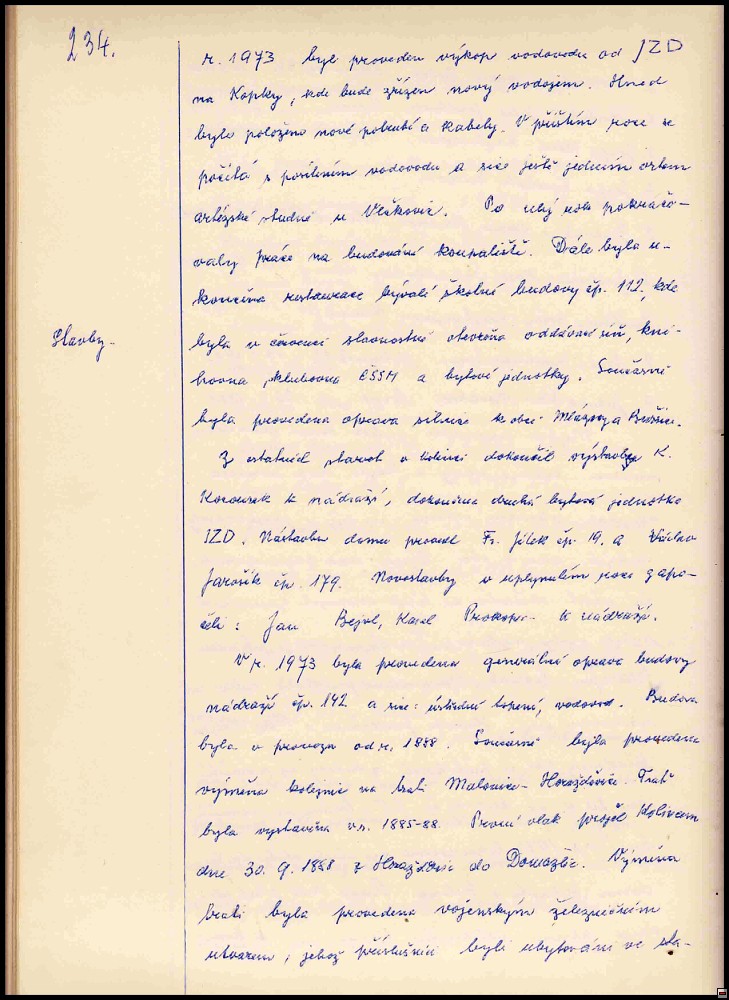 234.
r. 1973 byl proveden výkop vodovodu od JZD
na Kopky, kde bude zřízen nový vodojem. Hned
bylo položeno nové potrubí a kabely. V příštím roce se
počítá s posílením vodovodu a sice ještě jedním vrtem
artézské studně u Vlčkovic. Po celý rok pokračo-
valy práce na budování koupaliště. Dále byla u-
končena restaurace bývalé školní budovy čp. 112, kde
Stavby-
byla v červenci slavnostně otevřena oddávací síň, kni-
hovna, klubovna ČSSM a bytové jednotky. Současně
byla provedena oprava silnice k obci Mlázovy a Buršice.
Z ostatních staveb v Kolinci dokončil výstavbu K.
Kocourek k nádraží, dokončena druhá bytová jednotka
JZD. Nástavbu domu provedl Fr. Jílek čp. 19. a Václav
Jarošík čp. 179. Novostavby v uplynulém roce zapo-
čeli: Jan Bejvl, Karel Prokop- k nádraží.
V r. 1973 byla provedena generální oprava budovy
nádraží čp. 142 a sice: ústřední topení, vodovod. Budova
byla v provozu od r. 1888. Současně byla provedena
výměna kolejnic na trati Malonice- Horažďovice. Trať
byla vystavěna v r. 1885-88. První vlak projel Kolincem
dne 30. 9. 1888 z Horažďovic do Domažlic. Výměna
trati byla provedena vojenským železničním
útvarem, jehož příslušníci byli ubytováni ve sta-